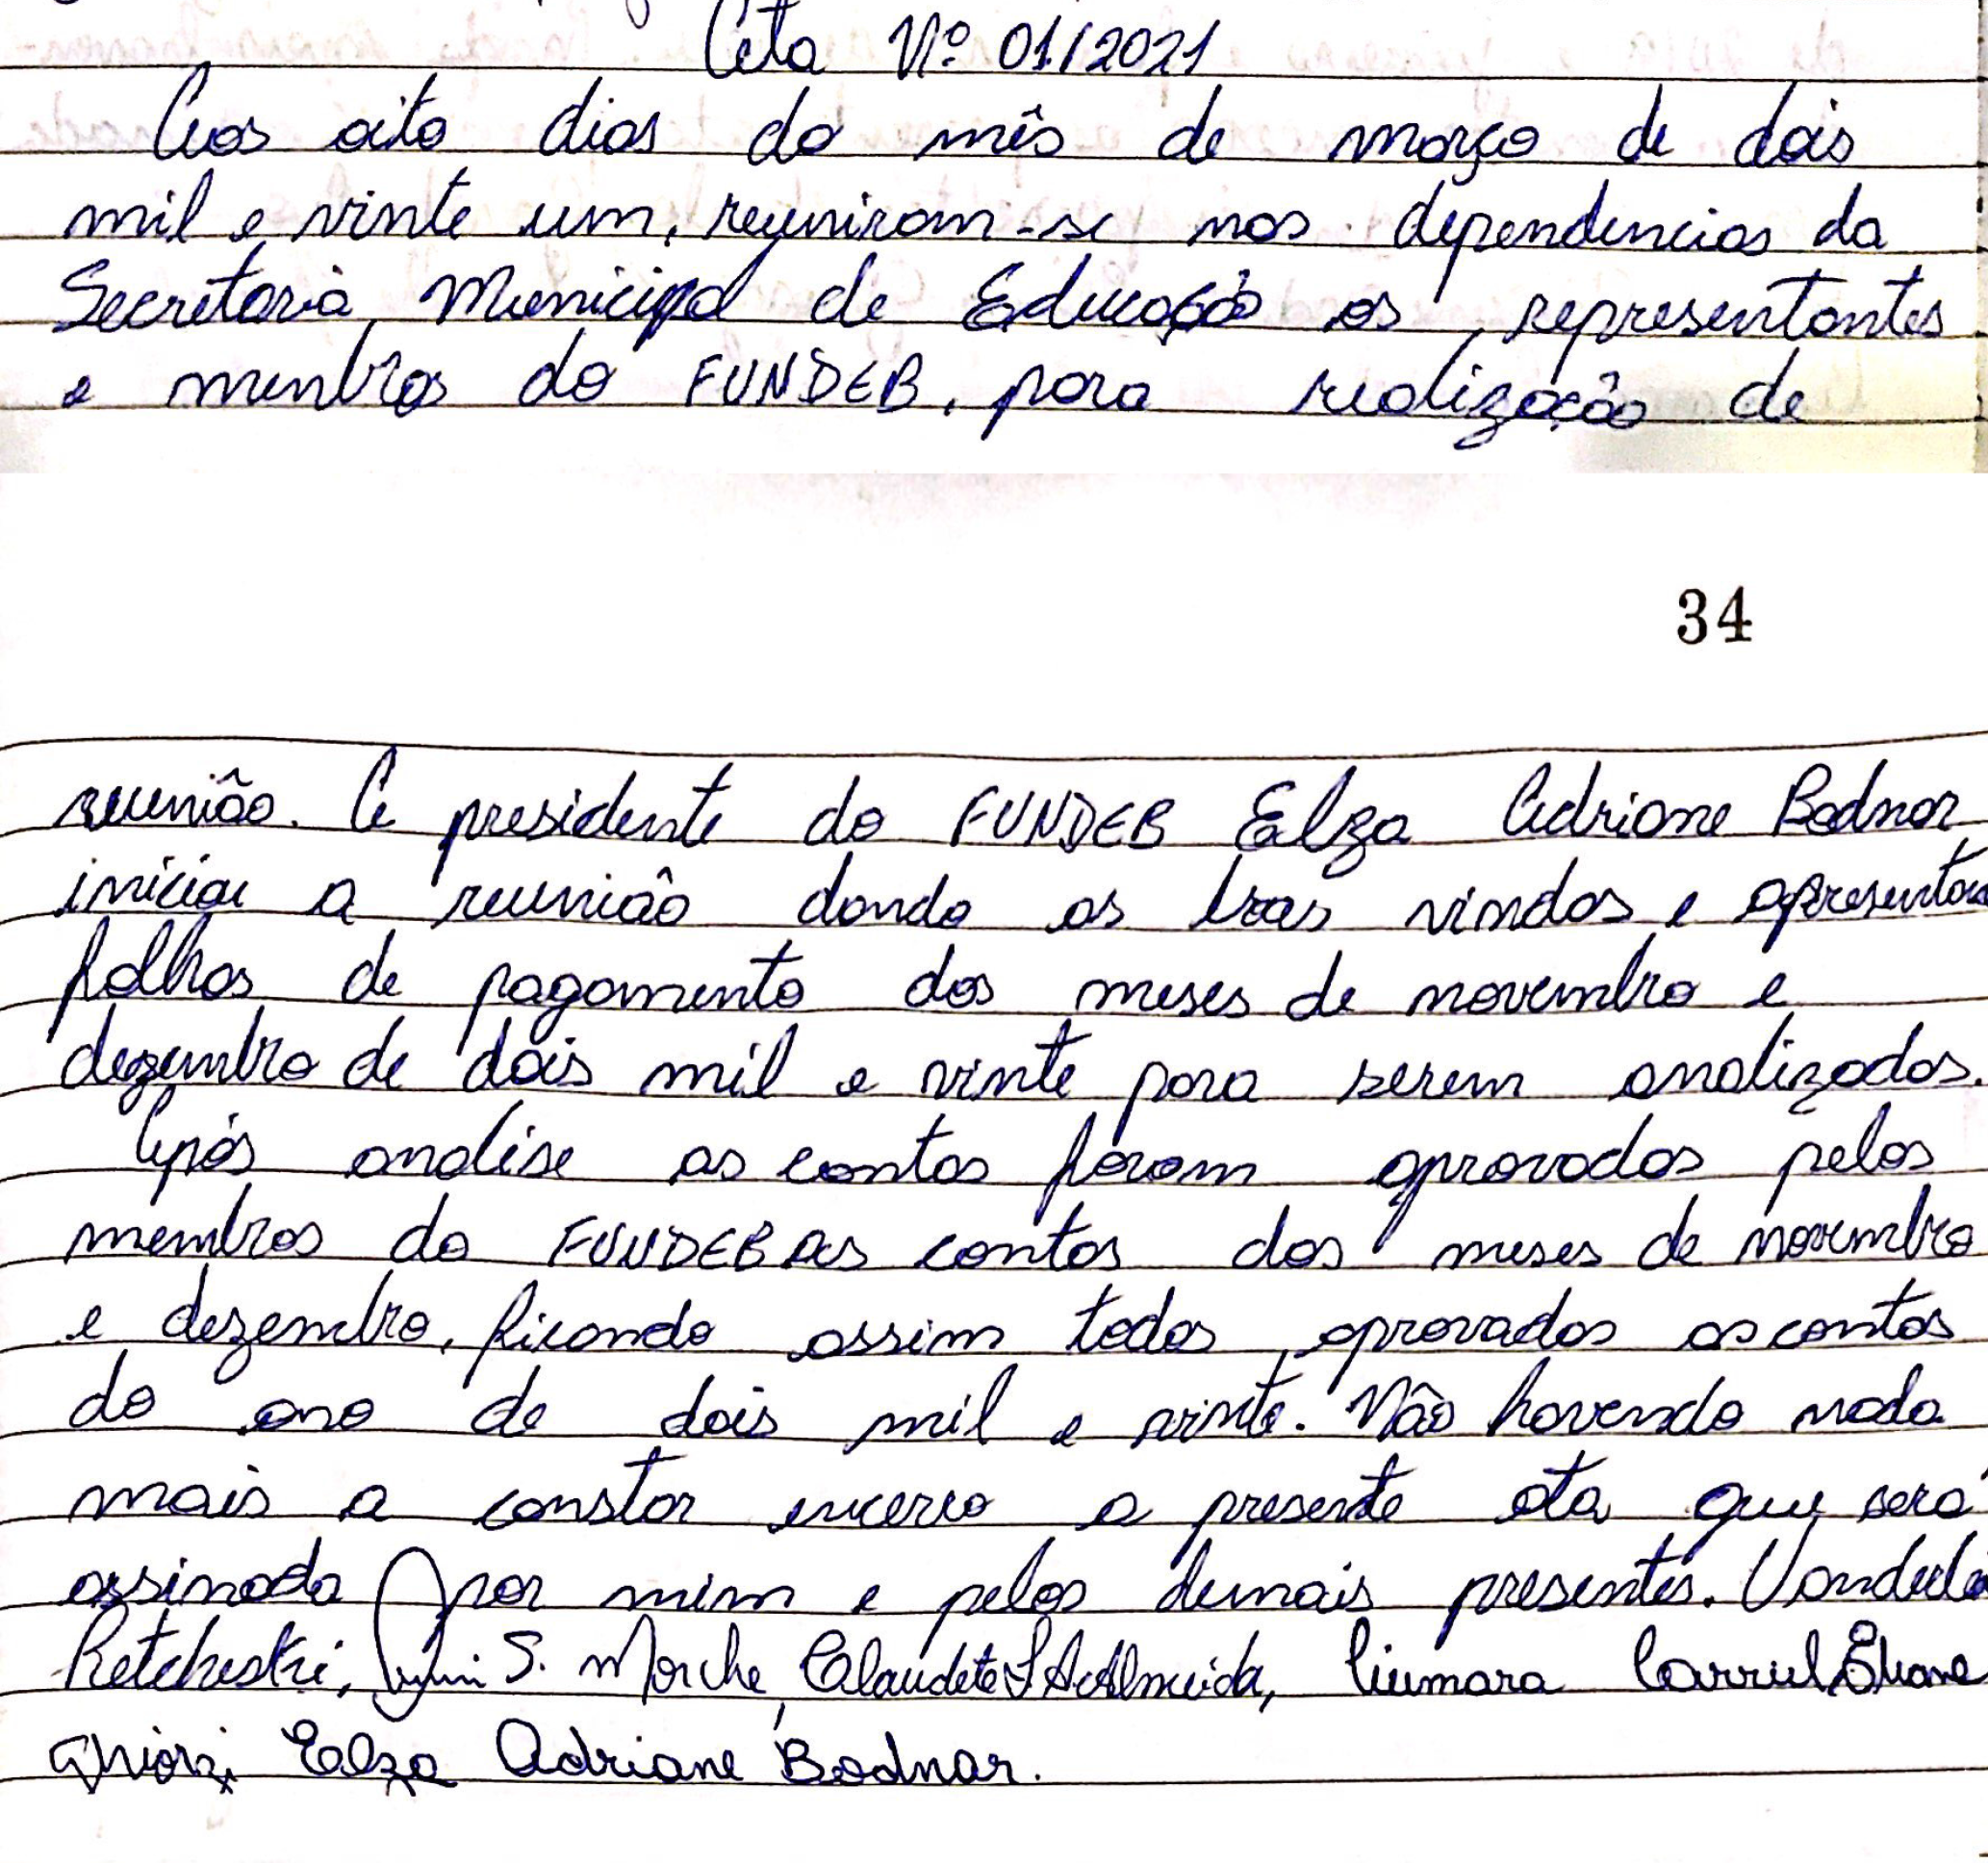 Ata Nº 01/2021
Aos oito dias do mês de março de dois
mil e vinte um, reuniram-se nas dependencias da
Secretaria Municipal de Educação os representantes
e menbros do FUNDEB, para realização de
34
reunião. A presidente do FUNDEB Elza Adriane Bodnar
iniciou a reunião dando as boas vindas e apresentou
folhas de pagamento dos meses de novembro e
dezembro de dois mil e vinte para serem analizados.
Após analise as contas foram aprovadas pelos
membros do FUNDEB as contas dos meses de novembro
e dezembro, ficando assim todas aprovadas as contas
do ano de dois mil e vinte. Não havendo nada
mais a constar encerro a presente ata que será
assinada por mim e pelos demais presentes.
Retcheski, S. Marche, Claudete Almeida, Liumara Carriel, Eliane
Elza Adriane Bodnar.